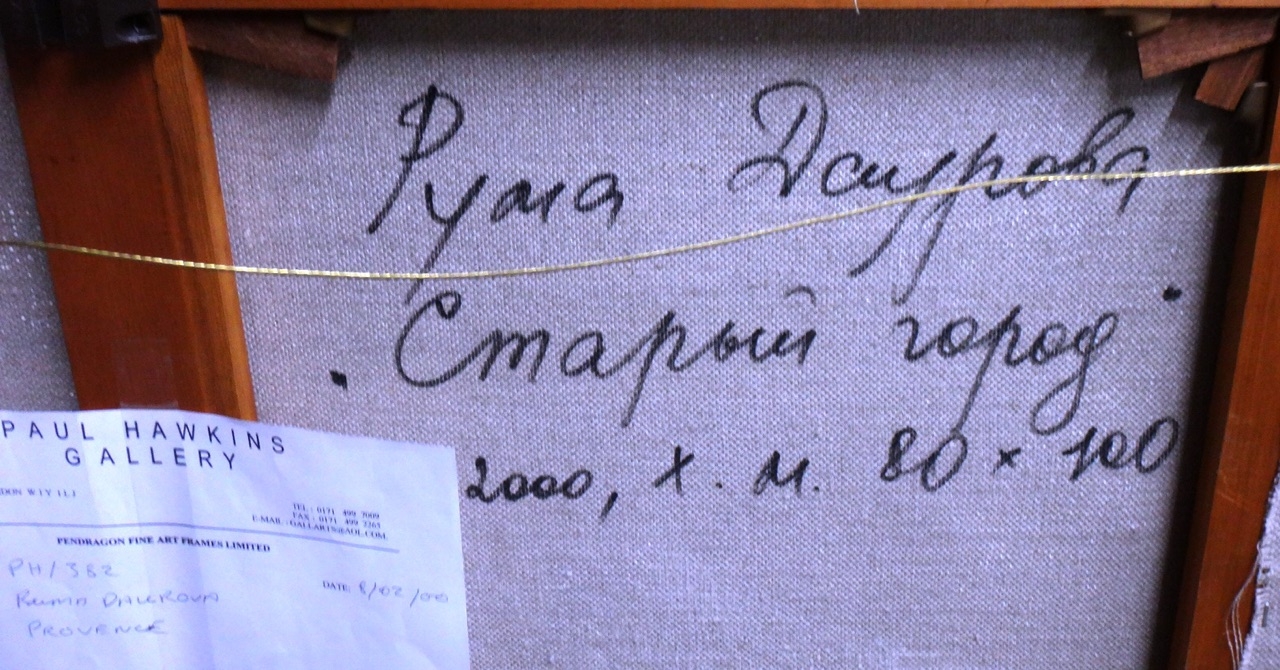 Рума Даурова
"Старый город"
2000, х. м. 80 × 100
PAUL HAWKINS
GALLERY
DON W1Y 1LJ
TEL : 0171 499 7009
FAX : 0171 499 2265
E-MAIL : GALLARTS@AOL.COM.
PENDRAGON FINE ART FRAMES LIMITED
PH/382
DATE: 8/02/00
RUMA DAUROVA
PROVENCE